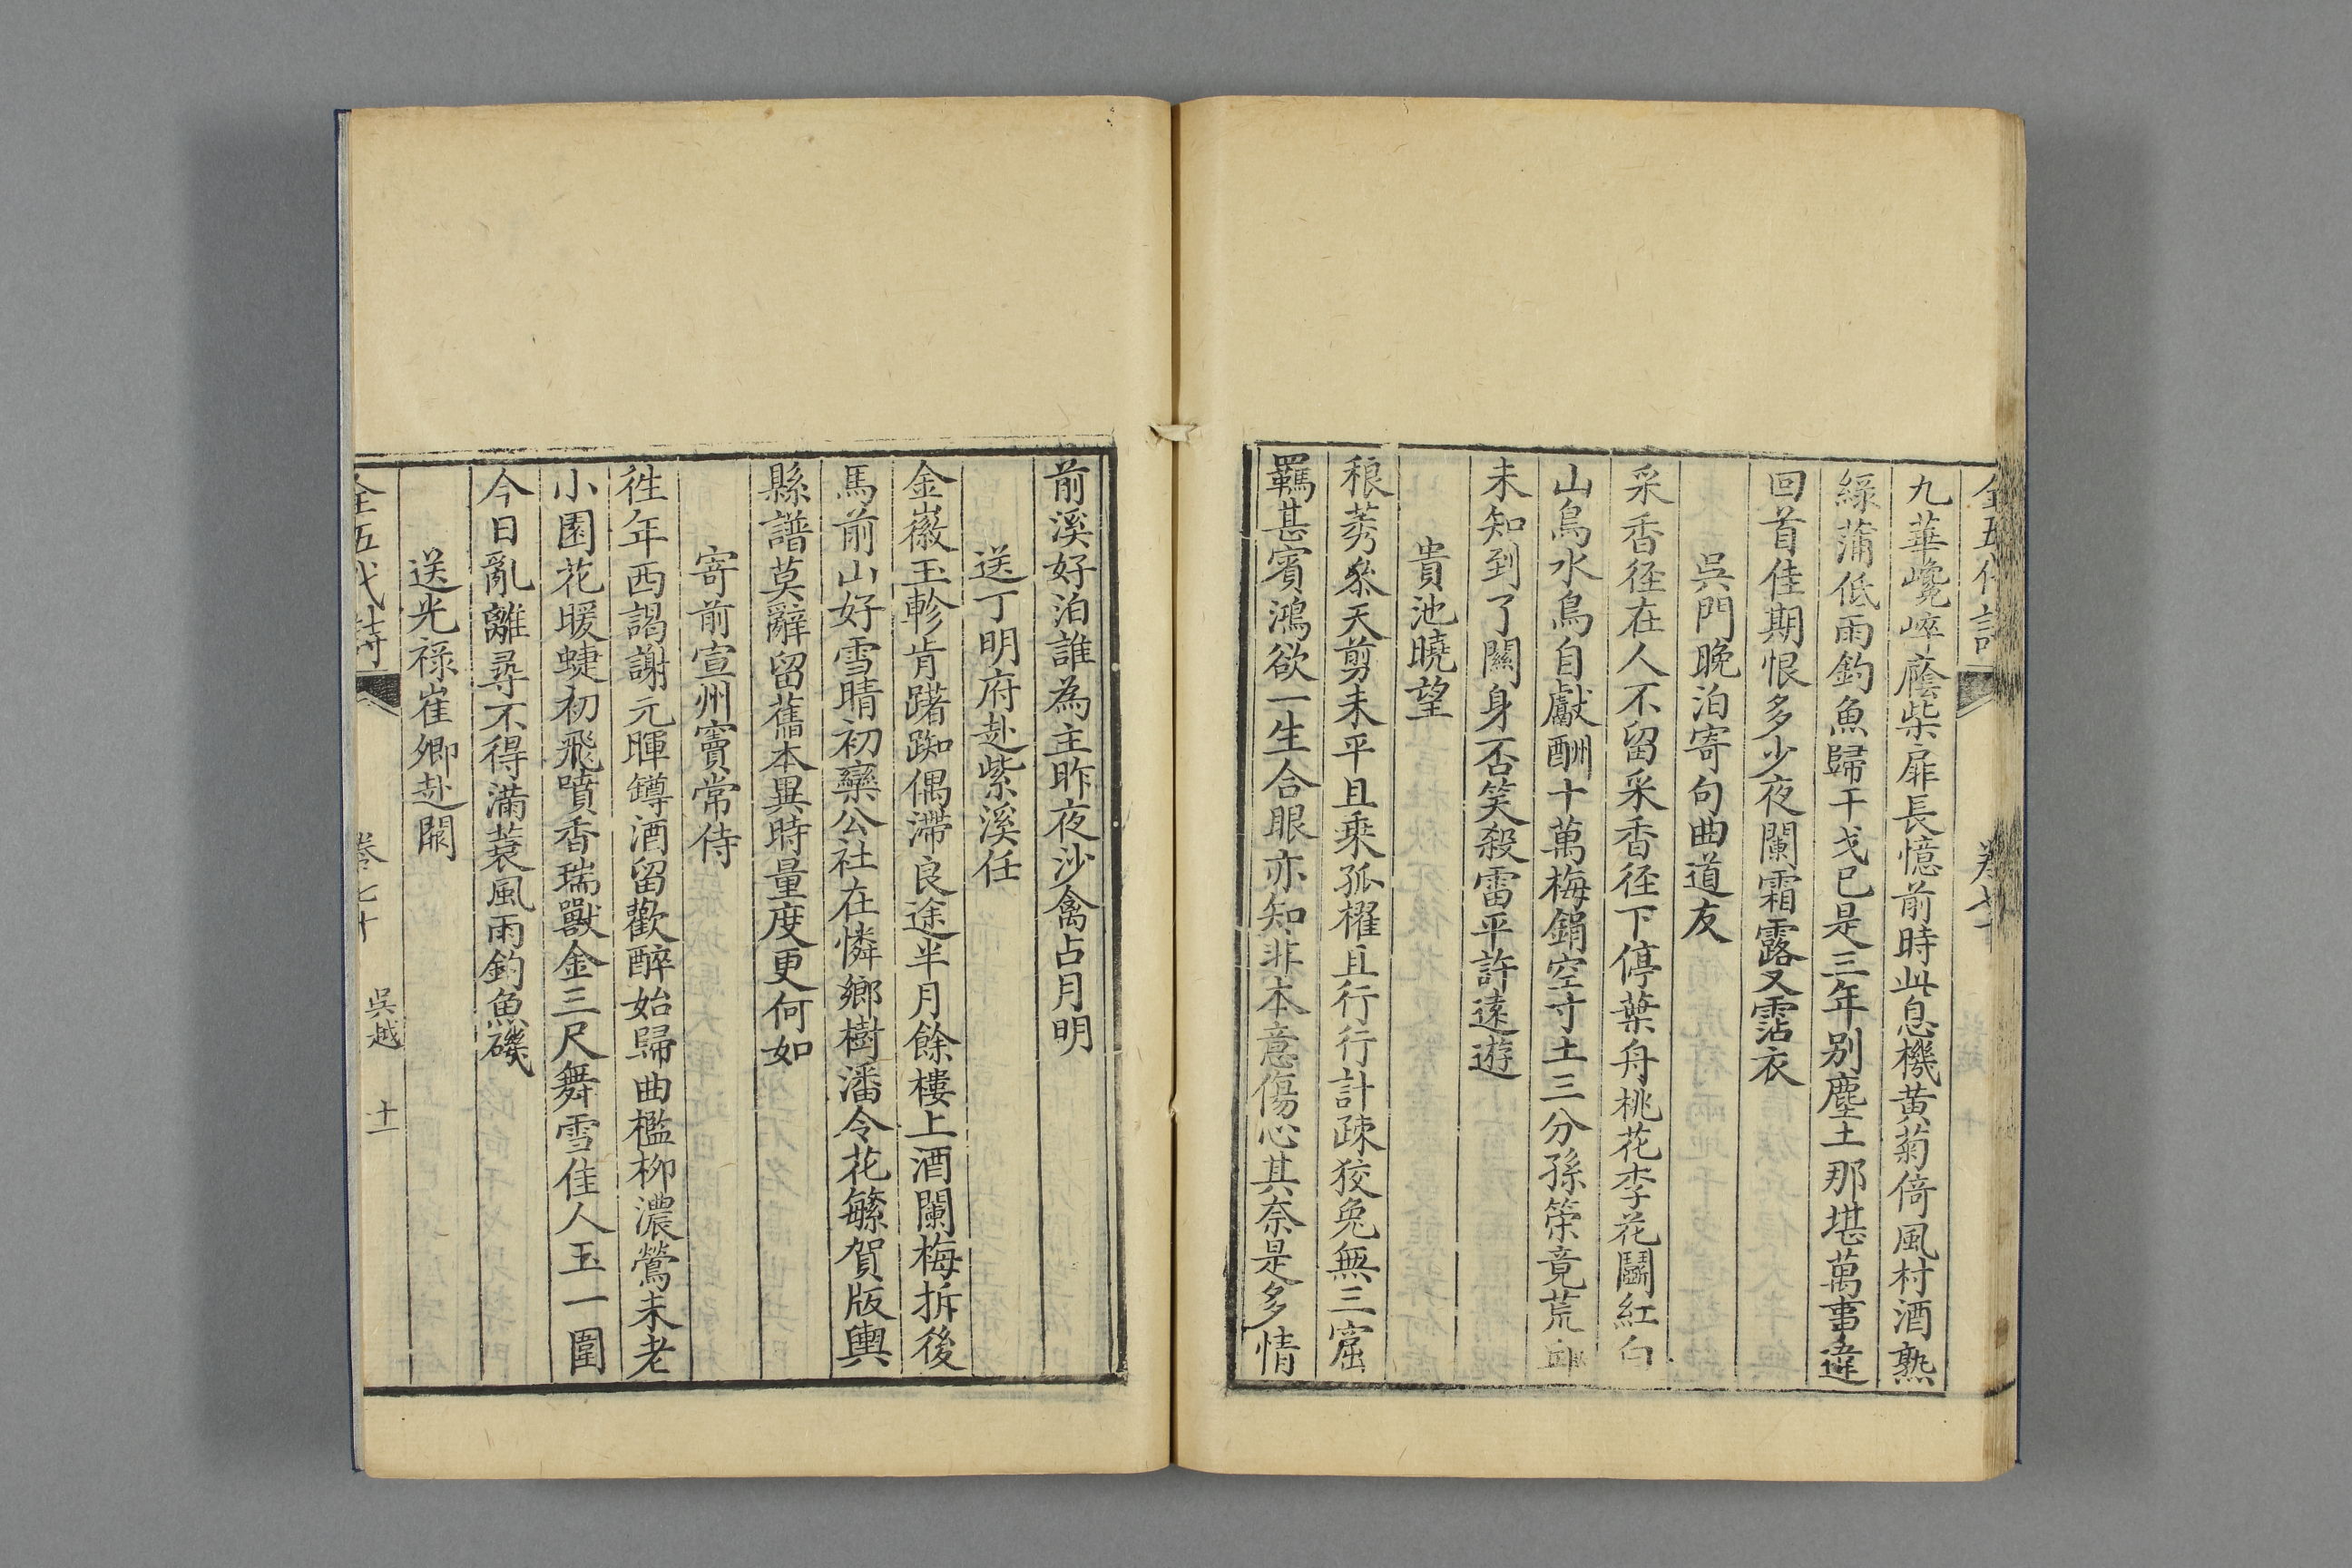 全五代詩 卷七十
九華巉崪廕柴扉長憶前時此息機黃菊倚風村酒熟
綠蒲低雨釣魚歸干戈已是三年别塵土那堪萬事違
回首佳期恨多少夜闌霜露又霑衣
吳門晚泊寄句曲道友
采香徑在人不留采香徑下停葉舟桃花李花鬬紅白
山鳥水鳥自獻酬十萬梅鋗空寸土三分孫策竟荒
未知到了關身否笑殺雷平許遠遊
貴池曉望
稂莠參天剪未平且乘孤櫂且行行計疎狡兔無三窟
羈甚賓鴻欲一生合眼亦知非本意傷心其奈是多情
前溪好泊誰為主昨夜沙禽占月明
送丁明府赴紫溪任
金徽玉軫肯躇踟偶滯良途半月餘樓上酒闌梅拆後
馬前山好雪晴初欒公社在憐鄉樹潘令花繁賀版輿
縣譜莫辭留舊本異時量度更何如
寄前宣州竇常侍
徃年西謁謝元暉罇酒留歡醉始歸曲檻柳濃鶯未老
小園花暖蜨初飛噴香瑞獸金三尺舞雪佳人玉一圍
今日亂離尋不得滿蓑風雨釣魚磯
送光祿崔卿赴闕
全五代詩 卷七十 吳越 十一